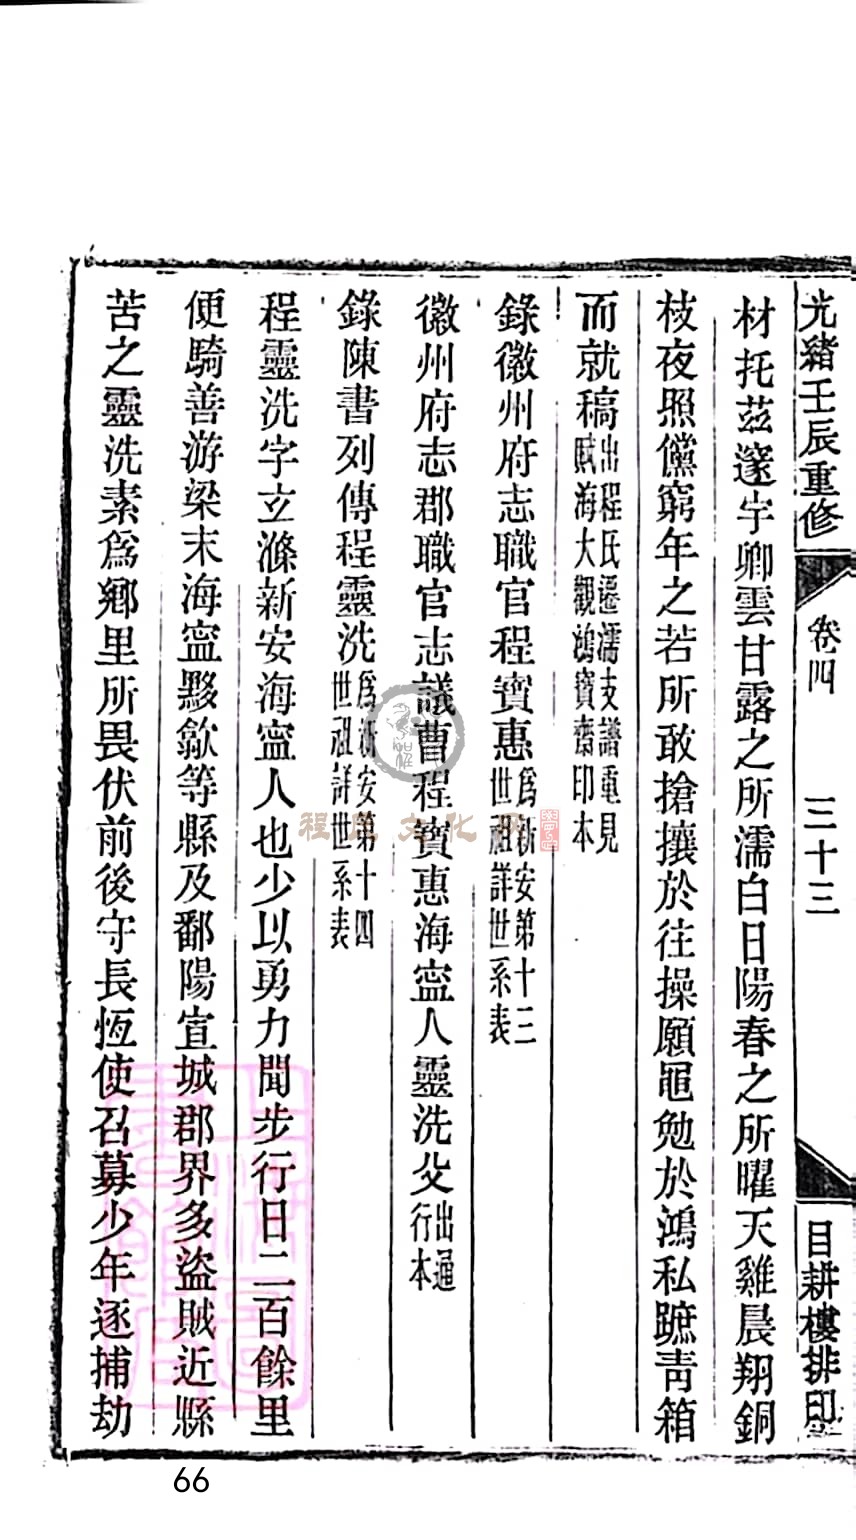 光緒壬辰重修
卷四
三十三
目耕樓排印
材托茲邃宇卿雲甘露之所濡白日陽春之所曜天雞晨翔銅
枝夜照儻窮年之若所敢搶攘於往操願黽勉於鴻私蹠靑箱
而就稿出程氏遷濡支譜重見
賦海大觀鴻寶齋印本
錄徽州府志職官程寶惠爲新安第十三
世祖詳世系表
徽州府志郡職官志議曹程寶惠海寍人靈洗父出通
行本
錄陳書列傳程靈洗爲新安第十四
世祖詳世系表
程靈洗字玄滌新安海寍人也少以勇力聞步行日二百餘里
便騎善游梁末海寍黟歙等縣及鄱陽宣城郡界多盜賊近縣
苦之靈洗素爲鄕里所畏伏前後守長恆使召募少年逐捕劫
程氏文化网
66